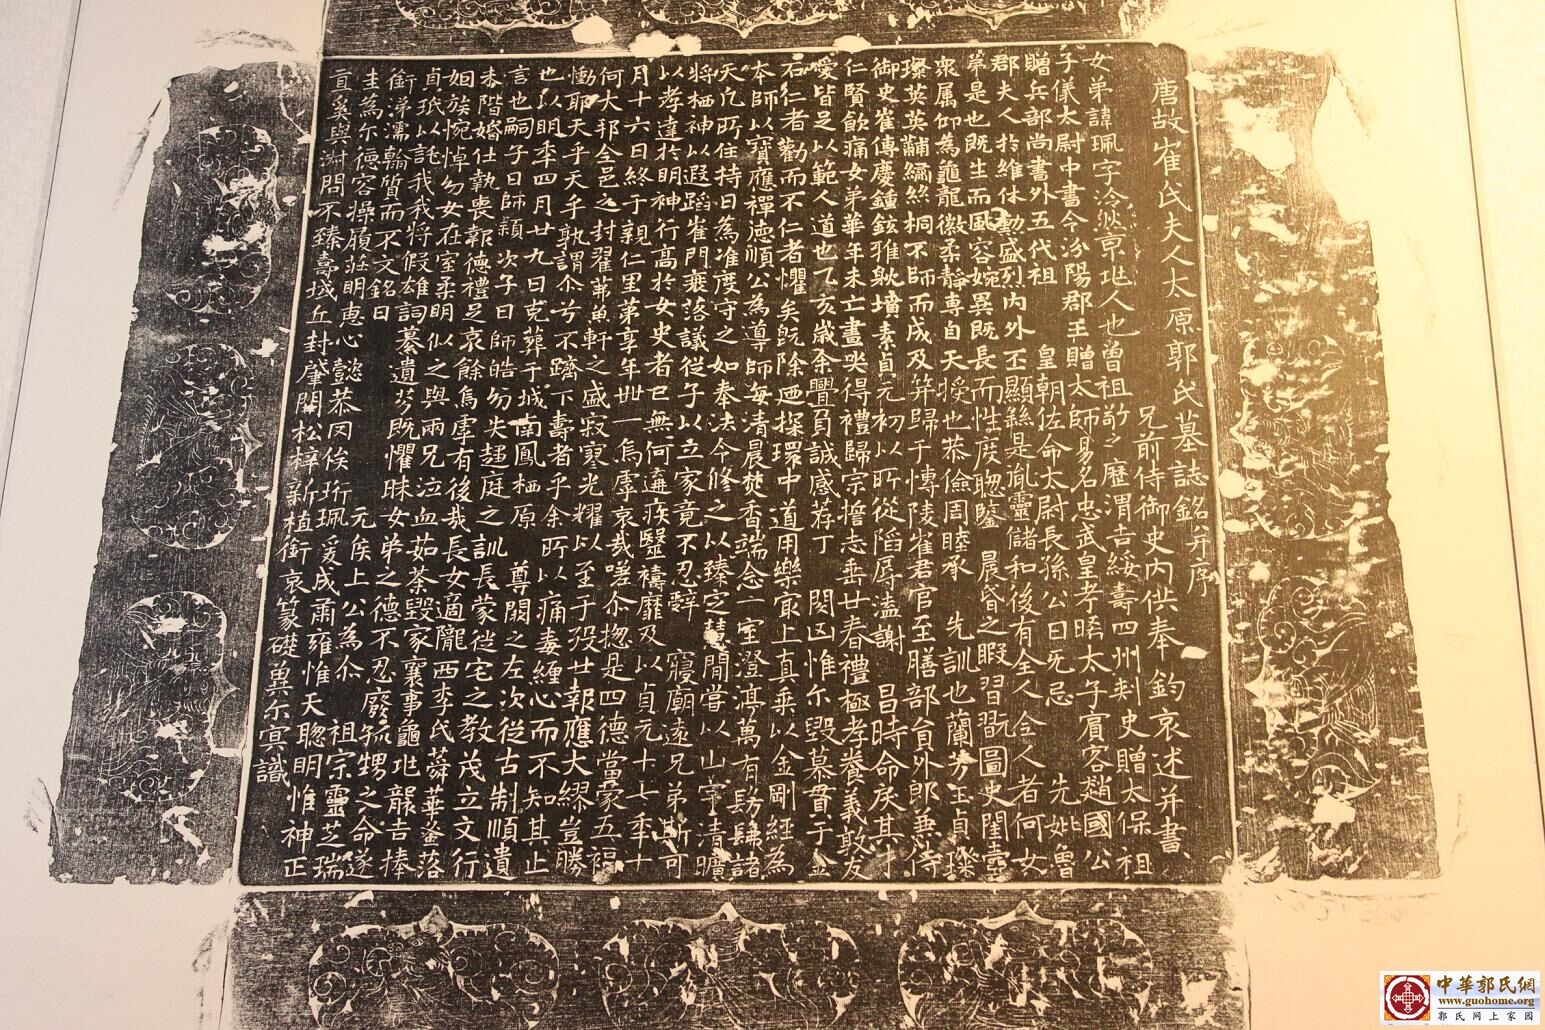 唐故崔氏夫人太原郭氏墓誌銘并序
兄前侍御史內供奉鈞哀述并書
女弟諱珮字泠然京地人也曾祖敬之歷渭吉綏壽四州刺史贈太保祖
子儀太尉中書令汾陽郡王贈太師易名忠武皇考晞太子賓客趙國公
贈兵部尚書外五代祖 皇朝佐命太尉長孫公曰无忌 先妣魯
郡夫人於維休勳盛烈內外丕顯繇是胤靈儲和後有全人全人者何女
弟是也既生而容婉異既長而性度聰鑒 晨昏之暇習翫圖史閨壼
眾属仰為龜龍徽柔靜專自天授也恭儉周睦承 先訓也蘭芳玉貞璨
璨英英黼繡絲桐不師而成及笄歸于博陵崔君官至膳部員外郎兼侍
御史崔傳慶鍾鉉雅躭墳素貞元初以所從陷辱溘謝 呂時命戾其才
仁賢飲痛女弟華年未亡晝哭得禮歸宗憺志垂廿春禮極孝養義敦友
愛皆足以範人道也乙亥歲余舋負誠感荐丁 閔凶惟尔毀慕實于金
石仁者勸而不仁者懼矣既除迺探環中道用樂冣上真乗以金剛經為
本師以寶應禪德順公為導師每清晨焚香端念一室澄渟萬有勝肆諸
天凡所住持日為准度守之如奉法令修之以臻定慧間嘗以山空清曠
將栖神以遐蹈崔門衰落議從子以立家竟不忍辭 寢廟遠兄弟斯可
以孝達於明神行高於女史者已無何遘疾毉禱靡及以貞元十七年十
月十六日終于親仁里弟享年卌一烏虖哀哉嗟尒揔是四德當蒙五福
何大邦令邑之封翟茀魚軒之盛寂寥光耀以至于歿廿報應大繆豈勝
慟耶天乎天乎孰謂尒兮不躋下壽者乎余所以痛毒纏心而不知其止
也以明年四月廿九日克葬于城南鳳栖原 尊闕之左次從古制順遺
言也嗣子曰師穎次子曰師皓勿失趨庭之訓長蒙從宅之教茂立文行
柰階婚仕執喪報德禮足哀餘烏虖有後哉長女適隴西李氏蕣華蚤落
姻族惋悼勿女在室柔明似之與兩兄泣血茹荼毀家襄事龜地龍吉捧
貞珉以託我我將假雄詞纂遺芳既懼昧女弟之德不忍廢孤甥之命遂
銜涕濡翰質而不文銘曰 元侯上公為尒 祖宗靈芝瑞
圭為尔德容操履莊明惠心懿恭冈俟珩珮爰成肅雍惟天聰明惟神正
直奚與澍問不臻壽域丘封肇開松梓新植銜哀篆礎異尔冥識
中華郭氏網
www.guohome.org
郭氏网上家园